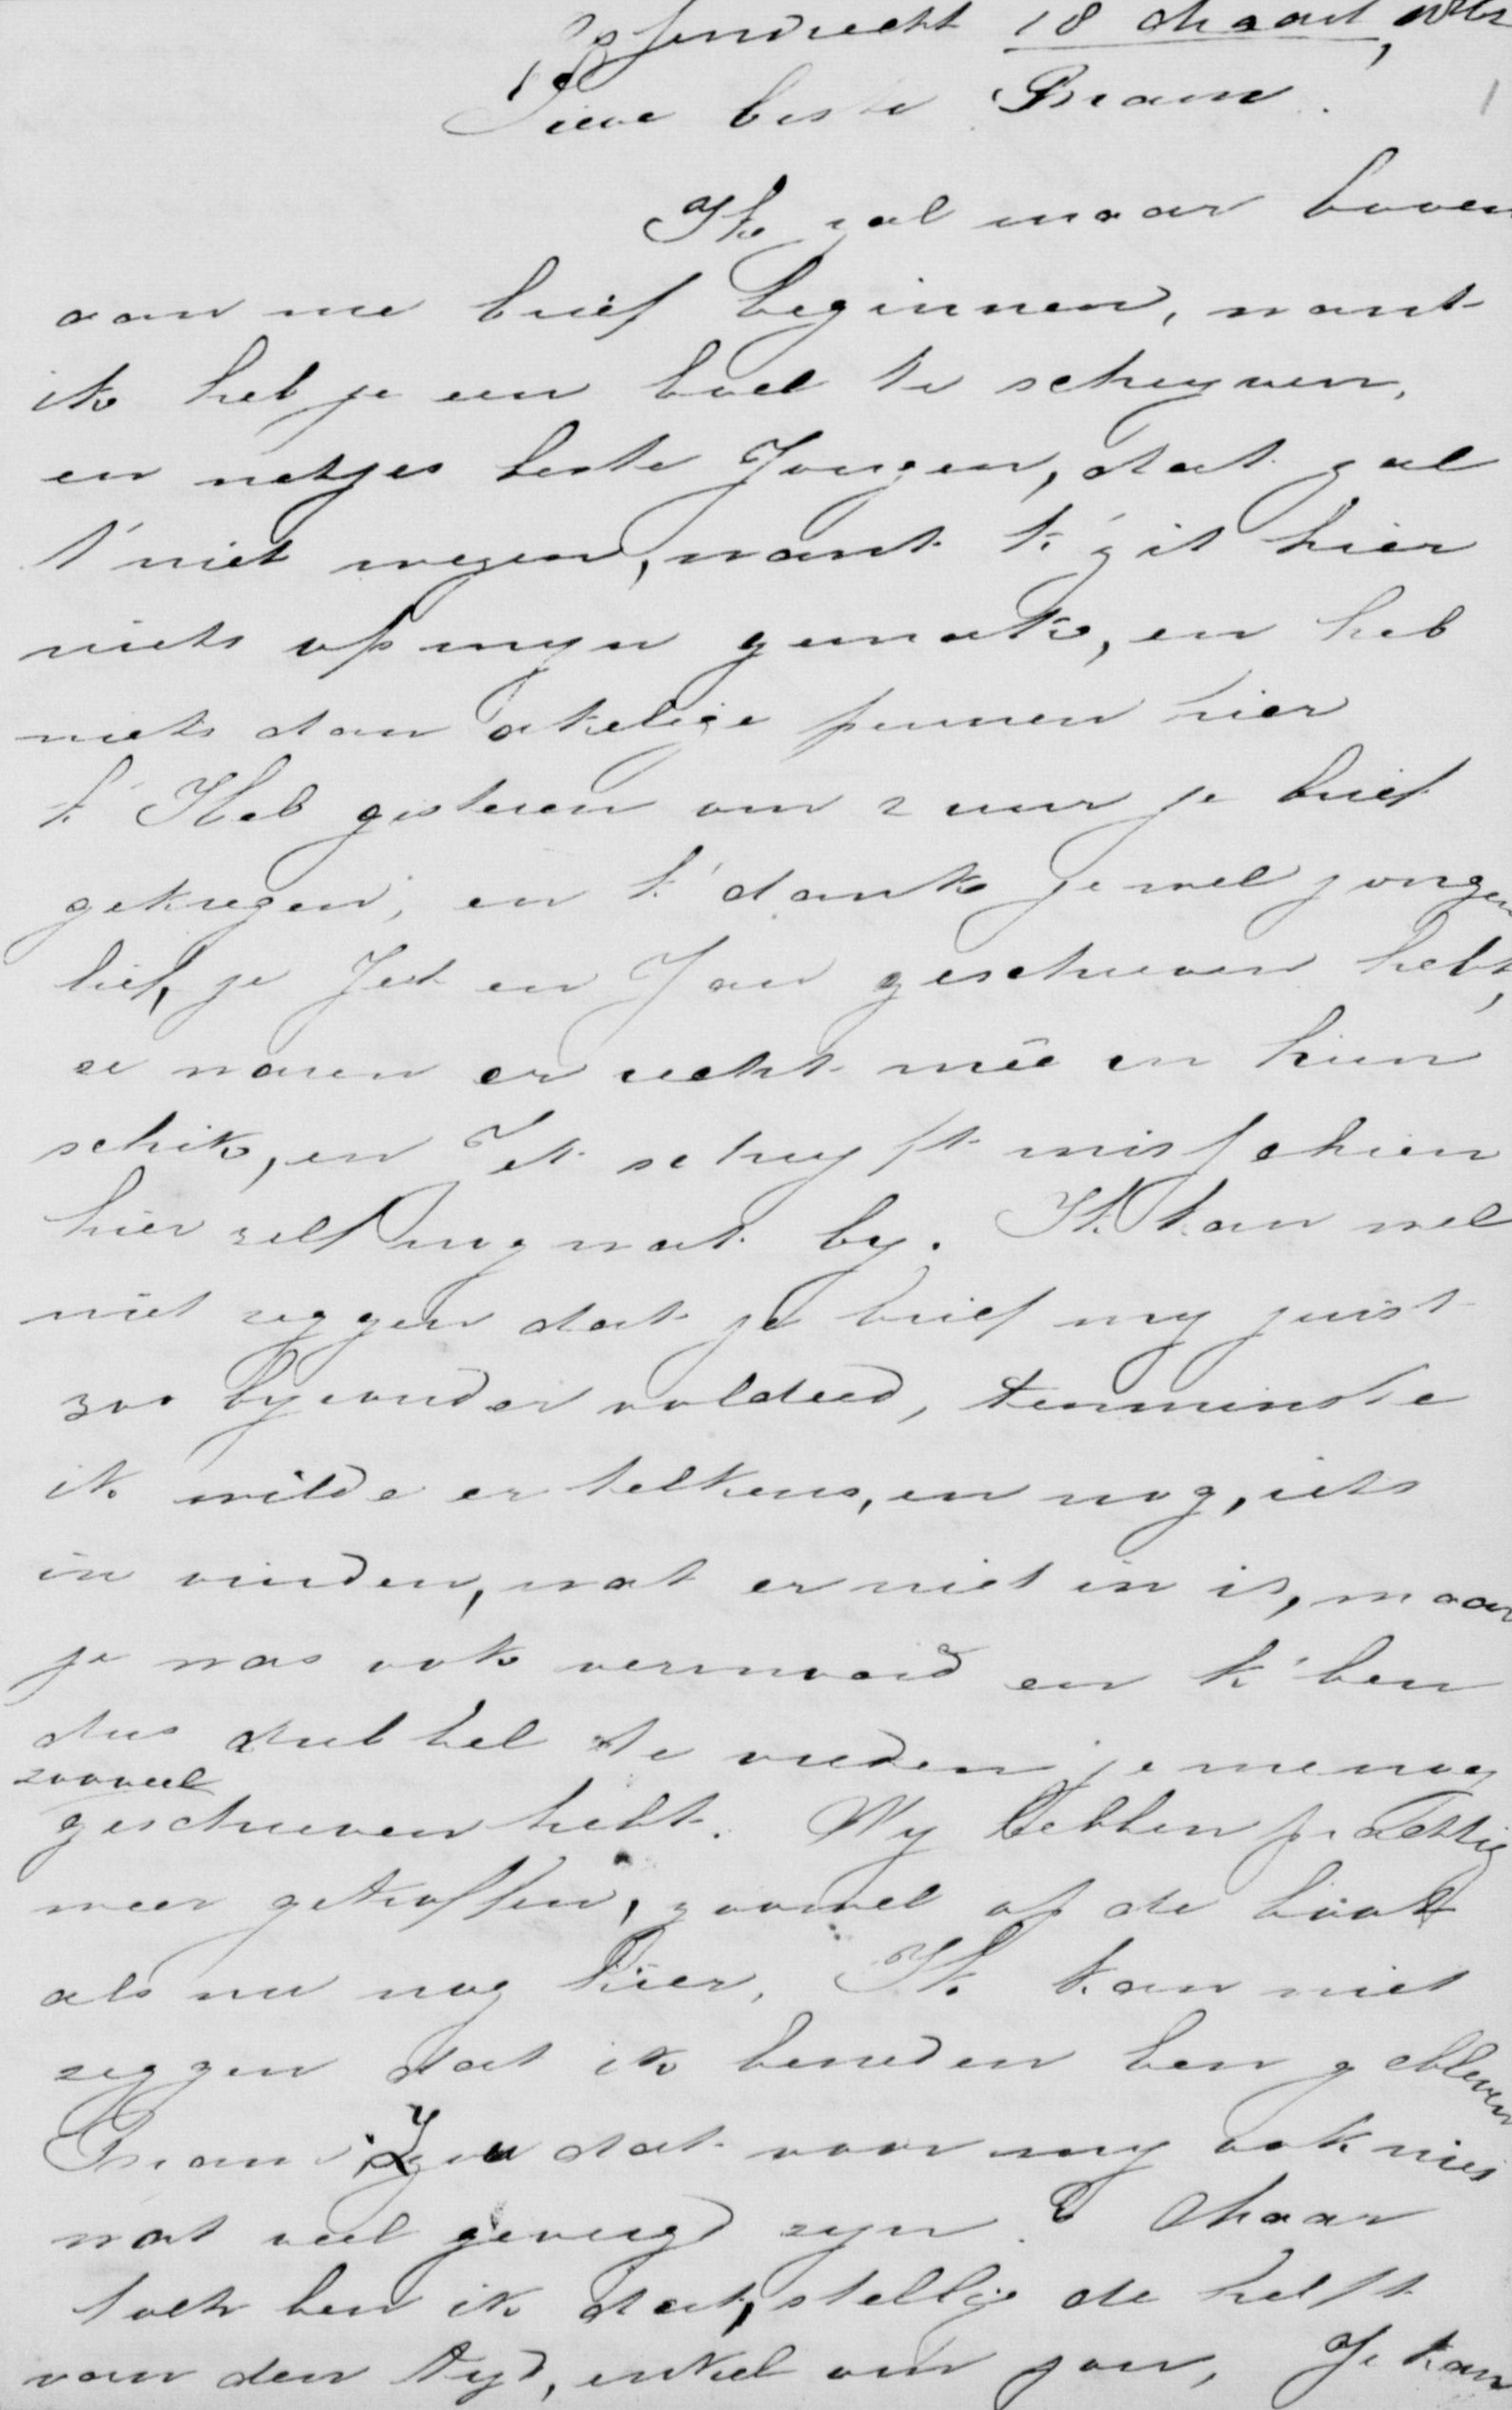 Papendrecht 18 Maart,
Lieve beste Bram.
Ik zal maar boven
aan me brief beginnen, want
ik heb je een boel te schryven,
en netjes beste Jongen, dat zal
't niet wezen, want k' zit hier
niets op myn gemak, en heb
niets dan akelige pennen hier
k' Heb gisteren om 2 uur je brief
gekregen, en k' dank je wel jongen
lief, je Jet en Jan geschreven hebt,
ze waren er recht mêe in hun
schik, en Jet schryft misschien
hier zelf nog wat by. Ik kan wel
niet zeggen dat je brief my juist
zoo byzonder voldeed, tenminste
ik wilde er telkens, en nog, iets
in vinden, wat er niet in is, maar
je was ook vermoeid en k' ben
dus dubbel te vreden je me nog
zooveel
geschreven hebt. Wy hebben prettig
weer getroffen, zoowel op de boot
als nu nog hier, Ik kan niet
zeggen dat ik beneden ben gebleven
Bram, Zou dat voor my ook niet
wat veel gevergd zyn? Maar
toch ben ik dat, stellig de helft
van den tyd, enkel om jou, Je kan